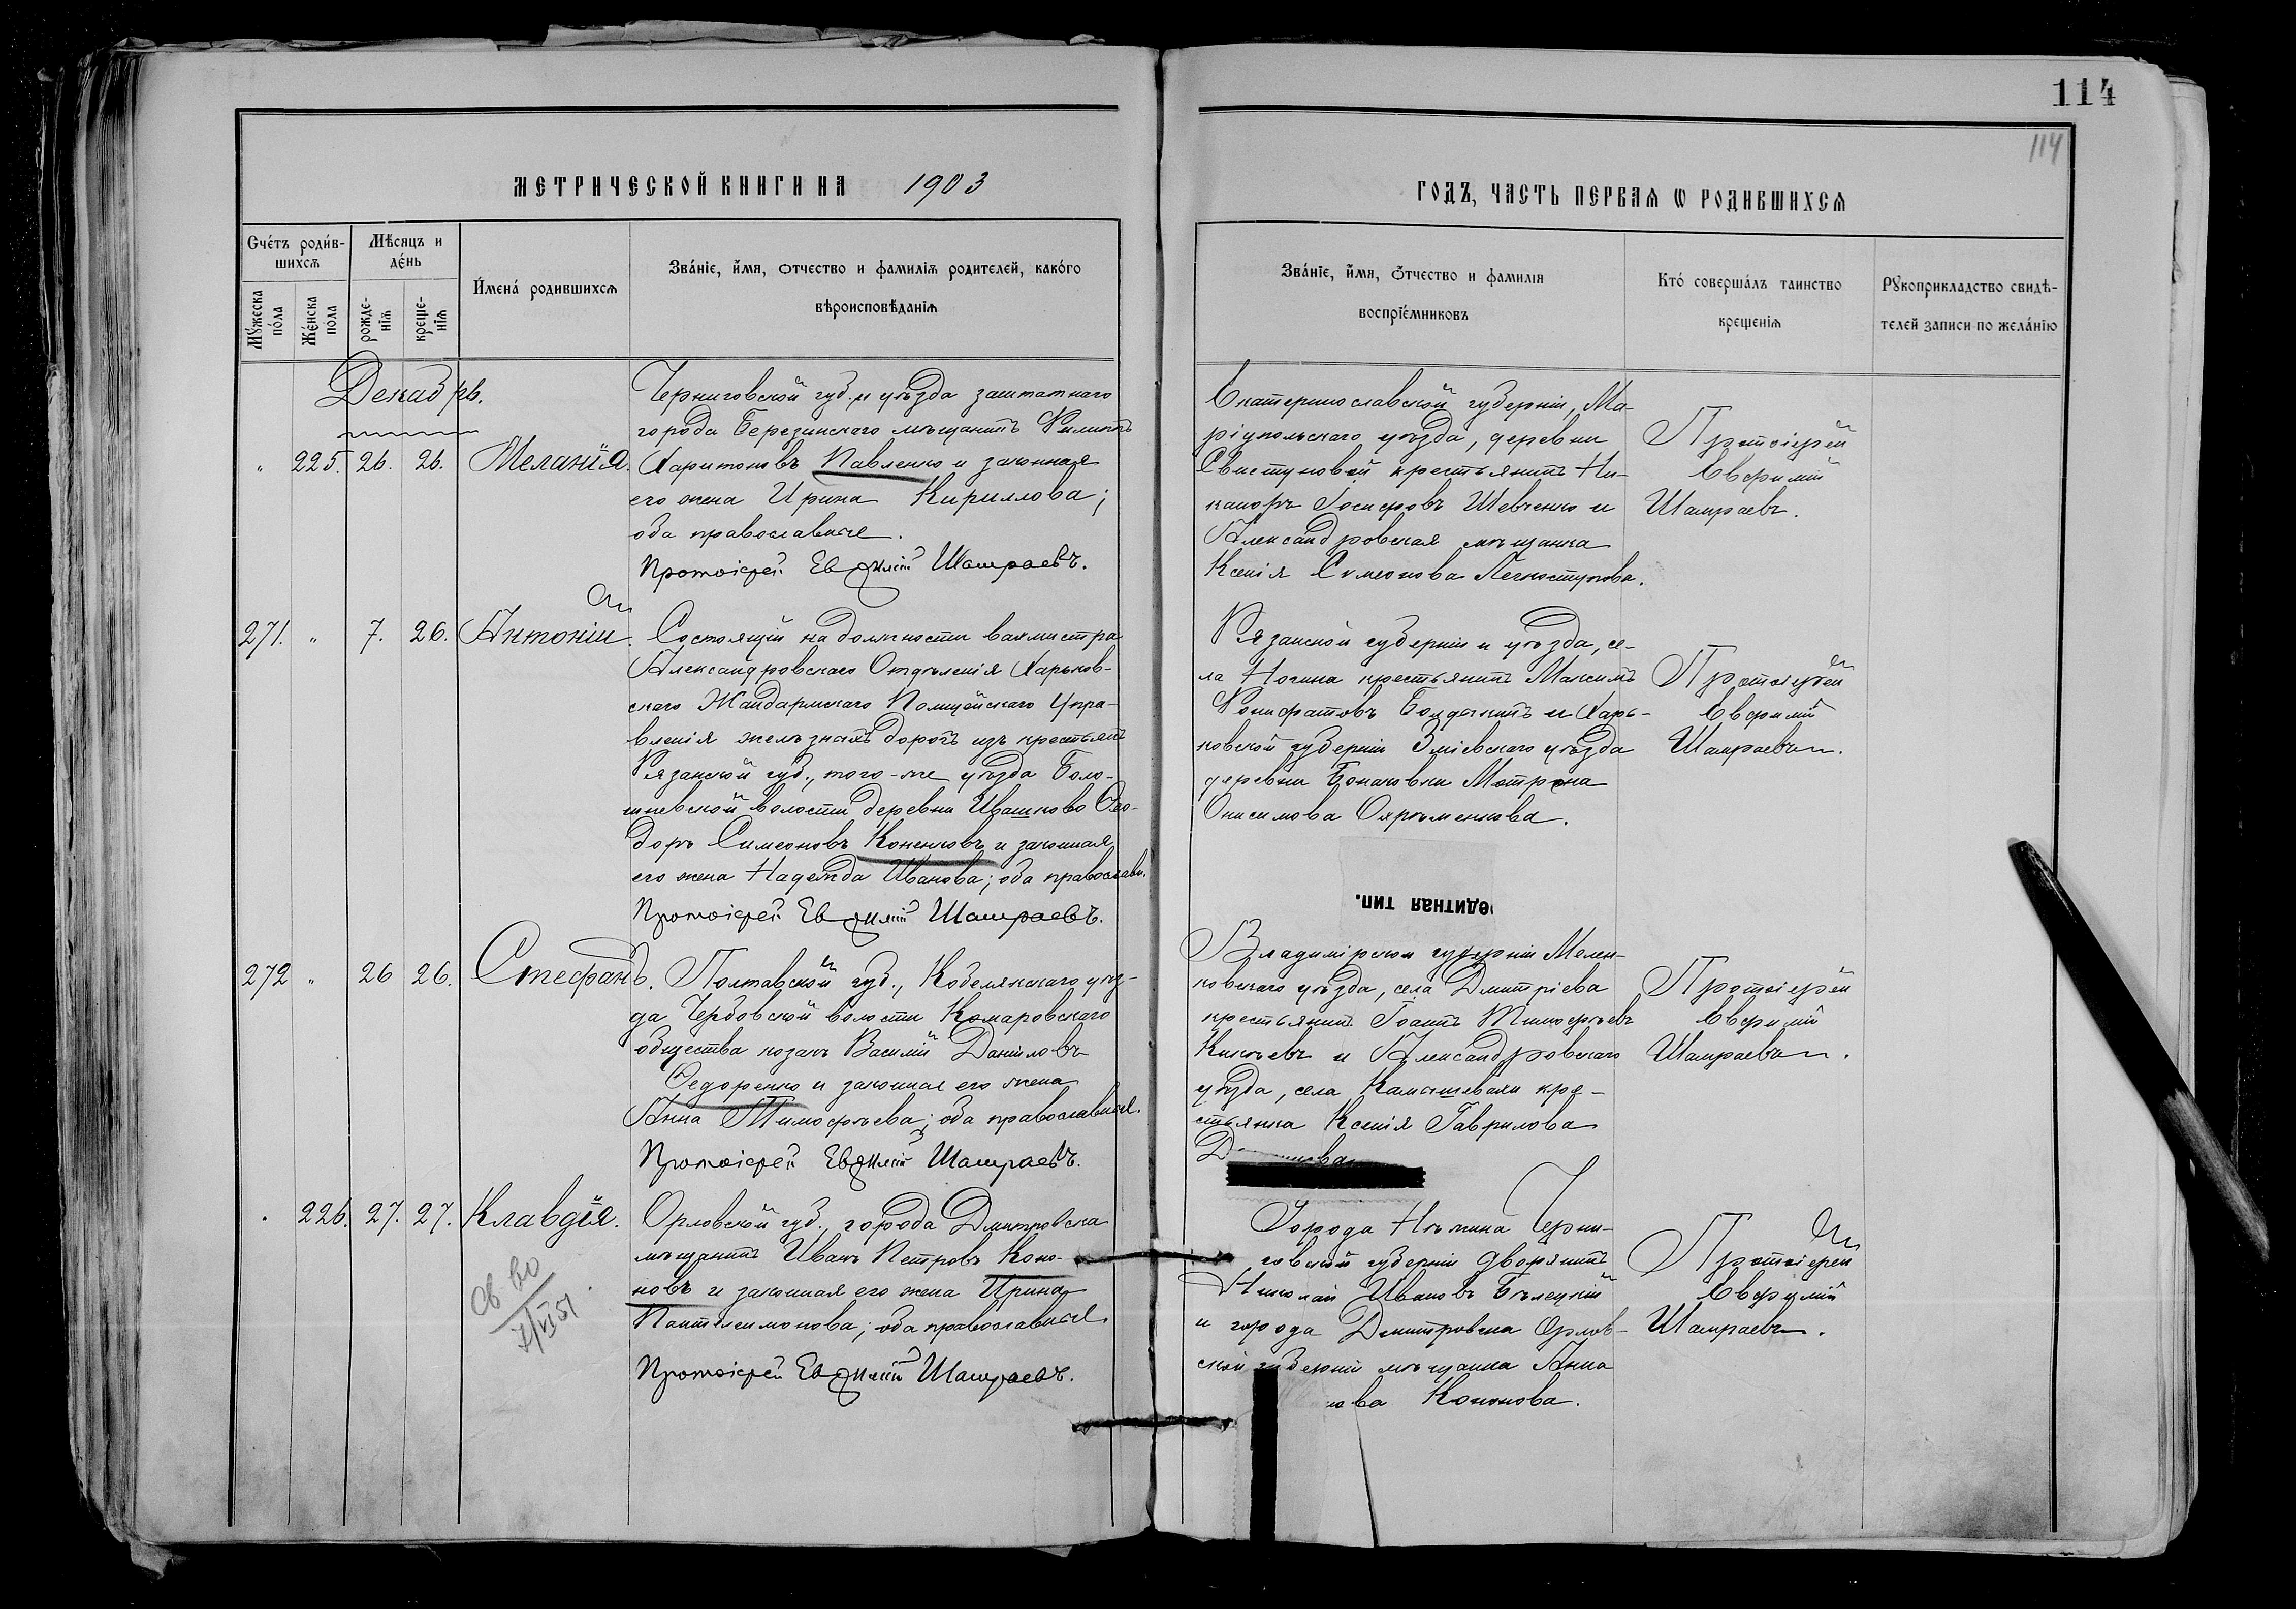 114
114
МЕТРИЧЕСКОЙ КНИГИ НА 1903
ГОДЪ, ЧАСТЬ ПЕРВАѦ Ѡ РОДИВШИХСѦ
Счéтъ роди́в-
шихсѧ
Мꙋжеска
по́ла
Же́нска
по́ла
Мѣ́сяцъ и
де́нь
рожде-
нїѧ
креще-
нїѧ
И҆мена́ родившихсѧ
Зва́нїе, и҆́мя, ѻтчество и фамилїѧ родителей, како́го
вѣроисповѣ́данїѧ
Зва́нїе, и҆́мя, ѻ҆́тчество и фамилїѧ
воспрїе́мниковъ
Кто́ соверша́лъ таинство
крещенїѧ
Рꙋкоприкладство свидѣ-
телей записи по жела́нїю
Декабрь.
" 225. 26. 26. Меланія.
Черниговской губ. и уѣзда заштатного
города Березинскаго мѣщанинъ Филиппъ
Харитоновъ Павленко и законная
его жена Ирина Кириллова;
оба православные.
Протоіерей Евѳимій Шампаевъ.
Екатеринославской губерніи, Ма-
ріупольскаго уѣзда, деревни
Свистуновой крестьянинъ Ни-
каноръ Іосифовъ Шевченко и
Александровская мѣщанка
Ксенія Симеонова Легкоступова.
Протоіерей
Евфимій
Шампаевъ.
271. " 7. 26. Антоній.
Состоящій на должности вахмистра
Александровскаго Отдѣленія Харьков-
скаго Жандармскаго Полицейскаго Упра-
вленія желѣзныхъ дорогъ изъ крестьянъ
Рязанской губ., того-же уѣзда Боло-
шневской волости деревни Ивашково Ѳео-
доръ Симеоновъ Коненковъ и законная
его жена Надежда Иванова; оба православн.
Протоіерей Евѳимій Шампаевъ.
Рязанской губерніи и уѣзда, се-
ла Ногина крестьянинъ Максимъ
Вонифатовъ Болдыкинъ и Харь-
ковской губерніи Зміевскаго уѣзда
деревни Бокаковки Матрона
Онисимова Охрѣменкова.
Протоіерей
Евфимій
Шампаевъ.
едитная тип.
272 " 26 26. Стефанъ.
Полтавской губ., Кобелякскаго уѣз-
да Чербовской волости Комаровскаго
общества козакъ Василій Даніиловъ
Ѳедоренко и законная его жена
Анна Тимофѣева; оба православные.
Протоіерей Евѳимій Шампаевъ.
Владимірской губерніи Мелен-
ковскаго уѣзда, села Дмитріева
крестьянинъ Іоаннъ Тимофѣевъ
Князевъ и Александровскаго
уѣзда, села Камышевахи кре-
стьянка Ксенія Гаврилова
Протоіерей
Евфимій
Шампаевъ.
. 226. 27. 27. Клавдія.
Св во
7/VI 51
Орловской губ., города Дмитровска
мѣщанинъ Иванъ Петровъ Коно-
новъ и законная его жена Ирина
Пантелеимонова; оба православные.
Протоіерей Евѳимій Шампаевъ.
Города Нѣжина Черни-
говской губерніи дворянинъ
Николай Ивановъ Бѣлецкій
и города Дмитровска Орлов-
ской губерніи мѣщанка Анна
ова Кононова.
Протоіерей
Евфимій
Шампаевъ.